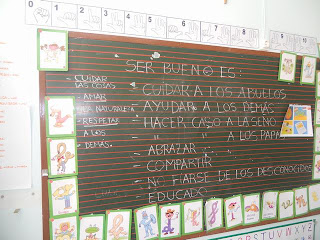 0 1 2 3 4 5 6 7 8 9 10
SER BUENO ES:
- CUIDAR LAS COSAS
- AMAR LA NATURALEZA
- RESPETAR A LOS DEMÁS.
- CUIDAR A LOS ABUELOS
- AYUDAR A LOS DEMÁS
- HACER CASO A LA SEÑO
- " " A LOS PAPÁ
- ABRAZAR
- COMPARTIR
- NO FIARSE DE LOS DESCONOCIDOS
- EDUCADO